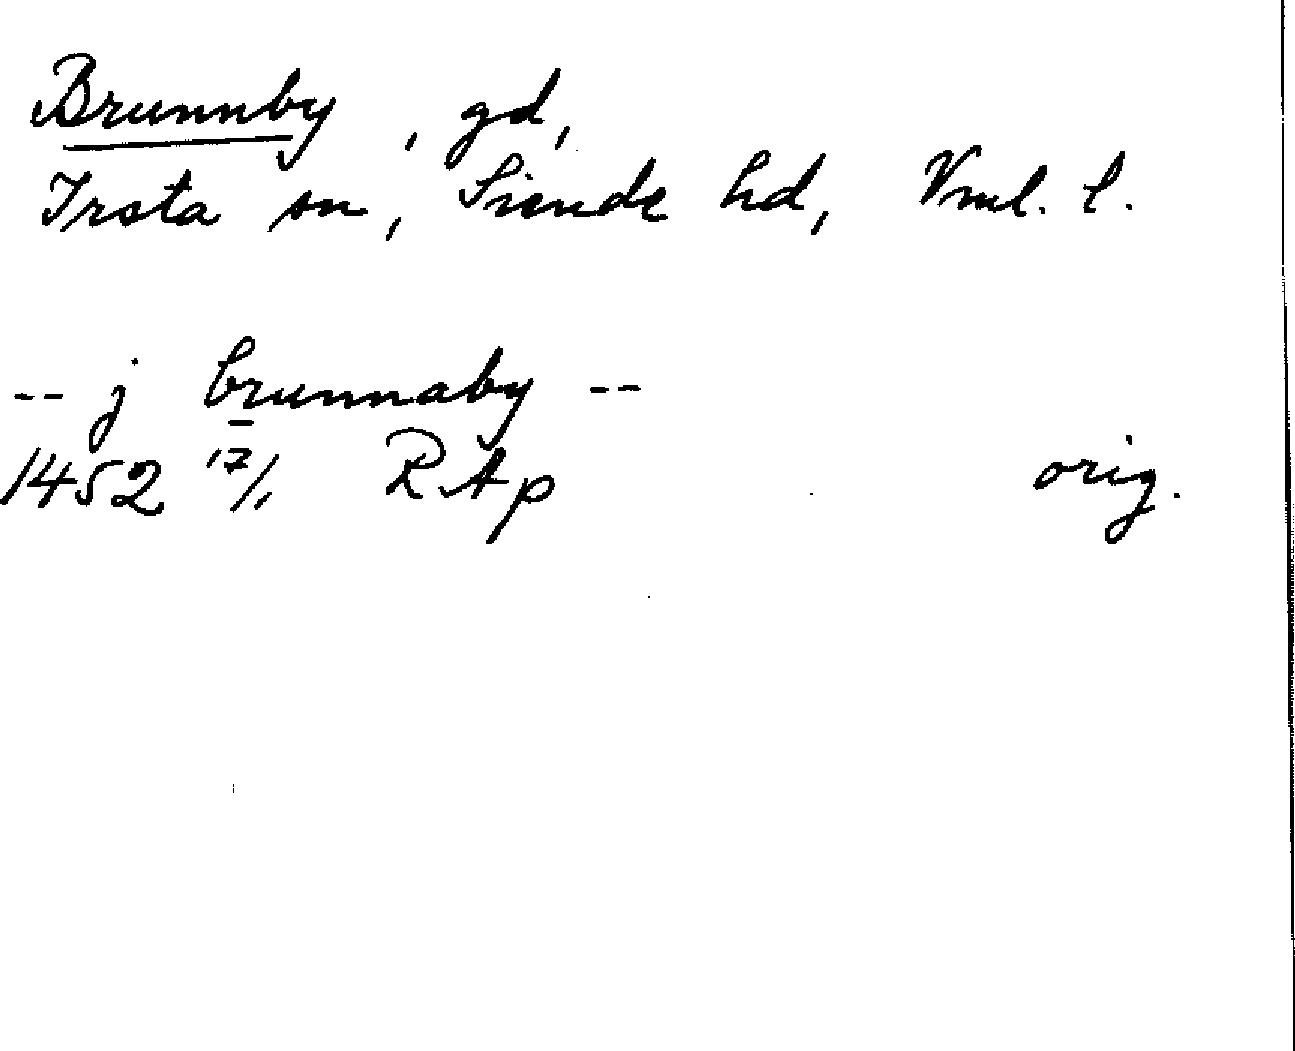 Brunnby, gd,
Irsta sn, Siende hd, Vml. l.
-- j brunnaby --
1452 17/1 RAp orig.